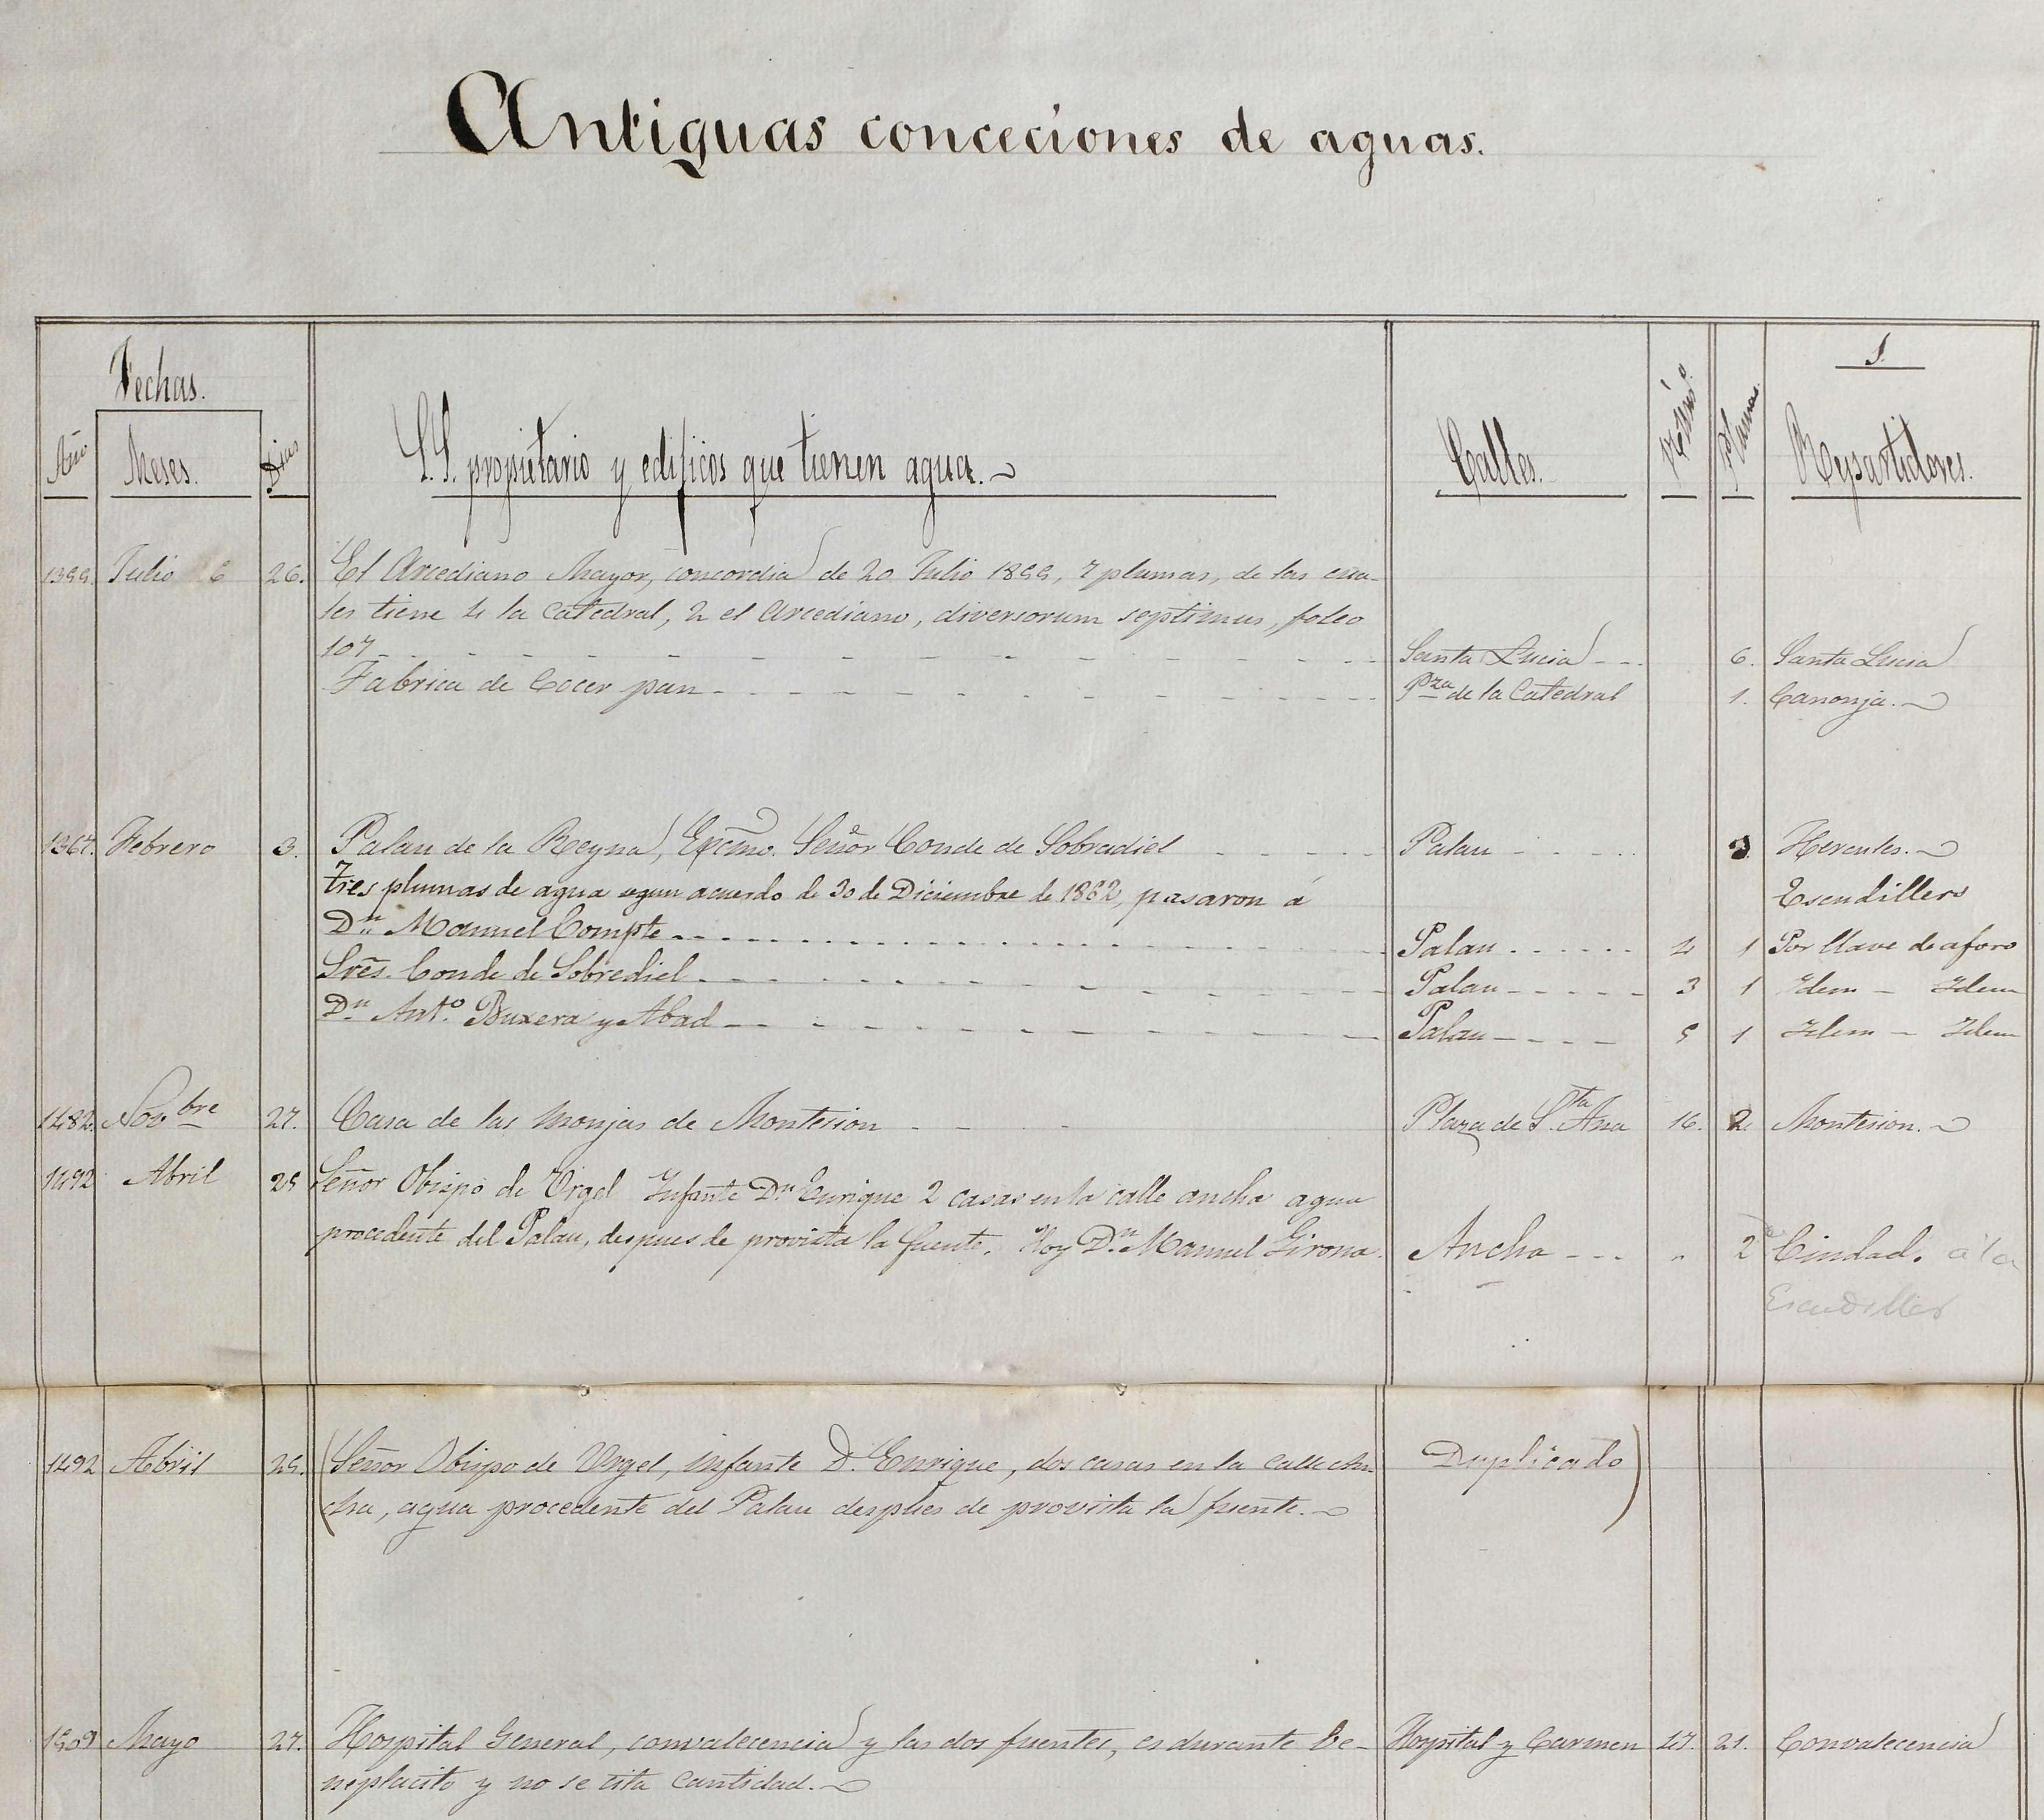 Antiguas conceciones de aguas.
Fechas.
Año Meses. Dias
S.S. propietario y edificos que tienen agua.
Calles.
Numº.
Plumas.
1
Repartidores.
1355. Julio 26. El Arcediano Mayor, concordia de 20 Julio 1855, 7 plumas, de las cua-
les tiene 4 la Catedral, 2 el Arcediano, diversorum septimus, foleo
107 Santa Lucia 6. Santa Lucia
Fabrica de Cocer pan Pza de la Catedral 1. Canonja.
1367. Febrero 3. Palau de la Reyna, Excmo. Señor Conde de Sobradiel Palau 3 Hercules.
Tres plumas de agua segun acuerdo de 30 de Diciembre de 1862, pasaron á Escudillers
Dn Manuel Compte Palau 4 1 Por llave de aforo
Sres. Conde de Sobrediel Palau 3 1 Idem - Idem
Dn Anto. Buxera y Abad Palau 5 1 Idem - Idem
1482. Novbre 27. Casa de las Monjas de Montesion Plaza de Sta Ana 16. 2. Montesion.
1492 Abril 25 Señor Obispo de Urgel Infante Dn Enrique 2 casas en la calle ancha agua
procedente del Palau, despues de provista la fuente. Hoy Dn Manuel Girona. Ancha " 2 Ciudad. á la
Escudiller
1492 Abril 25. (Señor Obispo de Urgel, infante D. Enrique, dos casas en la Calle An- Duplicado)
cha, agua procedente del Palau despues de provista la fuente.
1509 Mayo 27. Hospital General, convalecencia y las dos fuentes, es durante be- Hospital y Carmen 17. 21. Convalecencia
neplacito y no se cita cantidad.